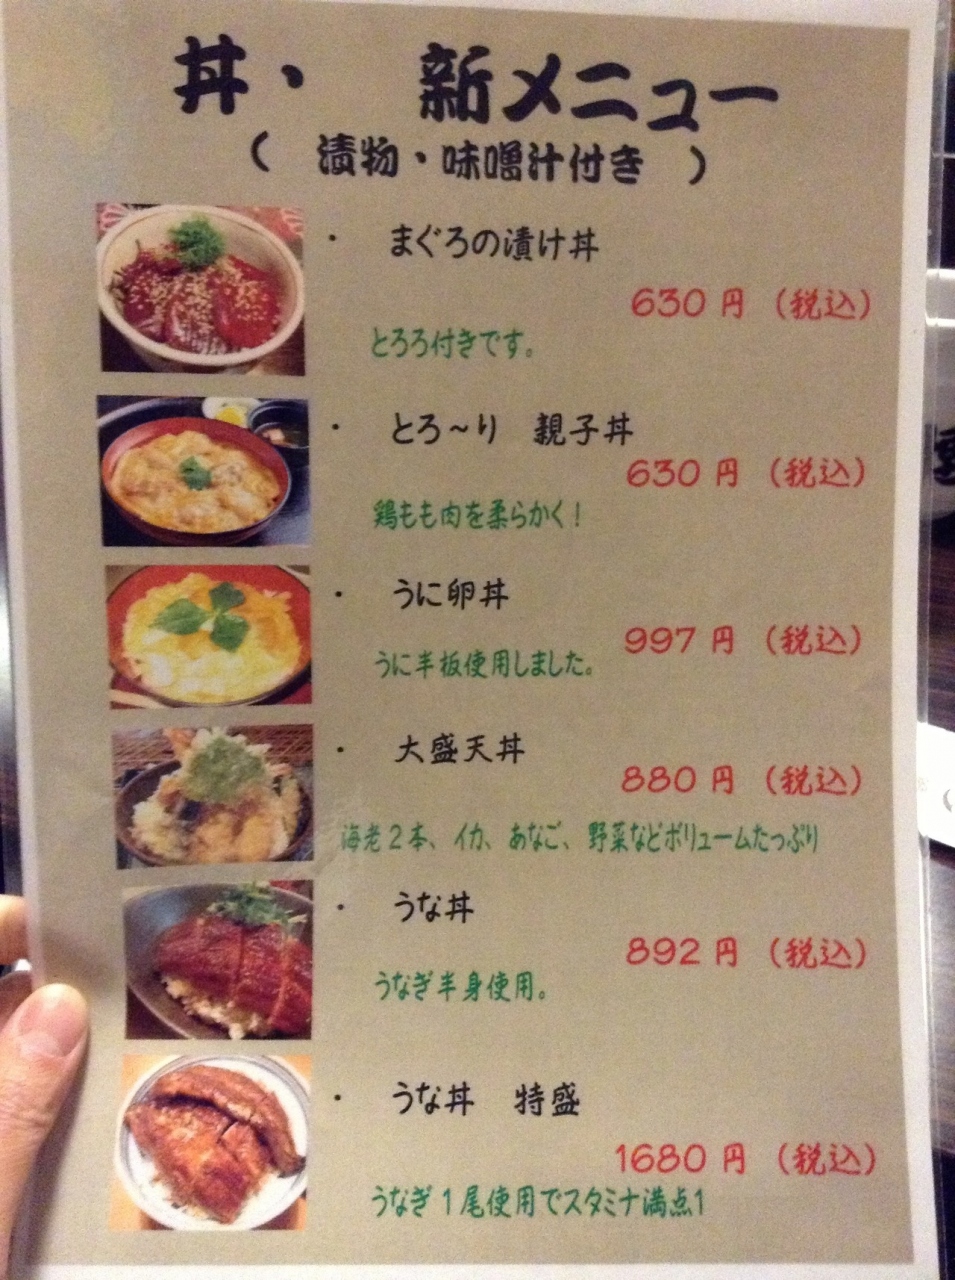 丼・　新メニュー
（　漬物・味噌汁付き　）
・　まぐろの漬け丼
630 円 （税込）
とろろ付きです。
・　とろ～り　親子丼
630 円 （税込）
鶏もも肉を柔らかく！
・　うに卵丼
997 円 （税込）
うに半板使用しました。
・　大盛天丼
880 円 （税込）
海老２本、イカ、あなご、野菜などボリュームたっぷり
・　うな丼
892 円 （税込）
うなぎ半身使用。
・　うな丼　特盛
1680 円 （税込）
うなぎ１尾使用でスタミナ満点1